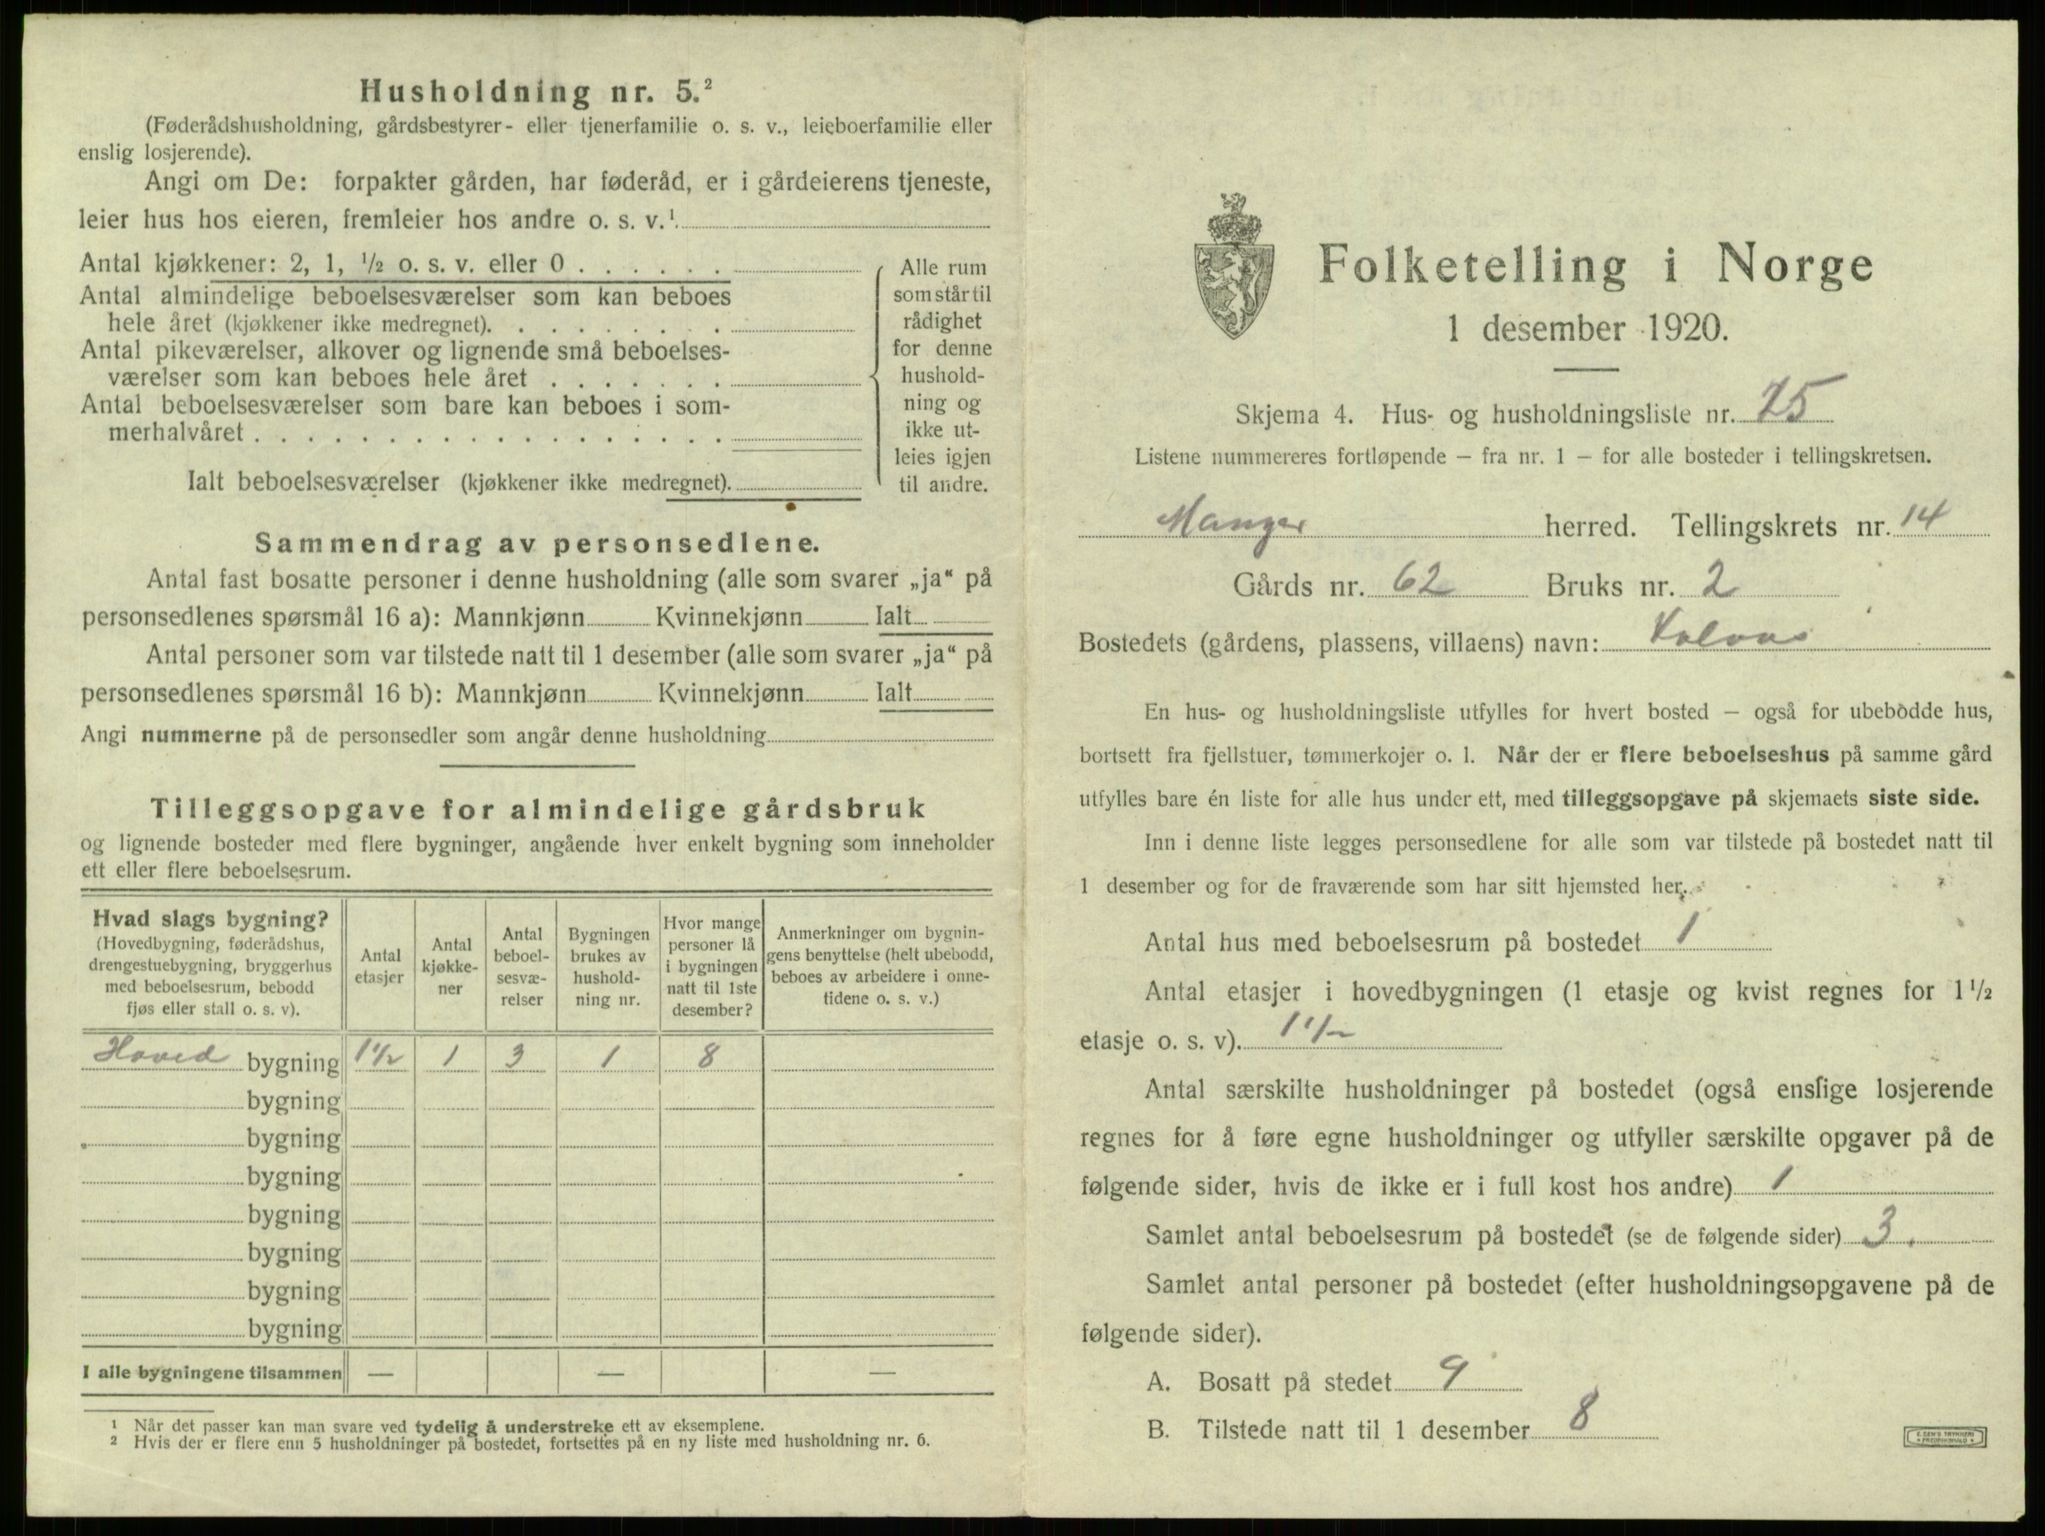 Husholdning nr. 5.²
(Føderådshusholdning, gårdsbestyrer- eller tjenerfamilie o. s. v., leieboerfamilie eller
enslig losjerende).
Angi om De: forpakter gården, har føderåd, er i gårdeierens tjeneste,
leier hus hos eieren, fremleier hos andre o. s. v.¹
Antal kjøkkener: 2, 1, ½ o. s. v. eller 0 . . . . . .
Antal almindelige beboelsesværelser som kan beboes
hele året (kjøkkener ikke medregnet). . . . . . . . .
Antal pikeværelser, alkover og lignende små beboelses-
værelser som kan beboes hele året . . . . . . .
Antal beboelsesværelser som bare kan beboes i som-
merhalvåret . . . . . . . . . . . . . . . . . .
Ialt beboelsesværelser (kjøkkener ikke medregnet).
Alle rum
som står til
rådighet
for denne
hushold-
ning og
ikke ut-
leies igjen
til andre.
Sammendrag av personsedlene.
Antal fast bosatte personer i denne husholdning (alle som svarer „ja“ på
personsedlenes spørsmål 16 a): Mannkjønn Kvinnekjønn Ialt
Antal personer som var tilstede natt til 1 desember (alle som svarer „ja“ på
personsedlenes spørsmål 16 b): Mannkjønn Kvinnekjønn Ialt
Angi nummerne på de personsedler som angår denne husholdning
Tilleggsopgave for almindelige gårdsbruk
og lignende bosteder med flere bygninger, angående hver enkelt bygning som inneholder
ett eller flere beboelsesrum.
Hvad slags bygning?
(Hovedbygning, føderådshus,
drengestuebygning, bryggerhus
med beboelsesrum, bebodd
fjøs eller stall o. s. v).
Antal
etasjer
Antal
kjøkke-
ner
Antal
beboel-
sesvæ-
relser
Bygningen
brukes av
hushold-
ning nr.
Hvor mange
personer lå
i bygningen
natt til 1ste
desember?
Anmerkninger om bygnin-
gens benyttelse (helt ubebodd,
beboes av arbeidere i onne-
tidene o. s. v.)
Hoved bygning 1½ 1 3 1 8
bygning
bygning
bygning
bygning
bygning
bygning
bygning
I alle bygningene tilsammen — — —
¹ Når det passer kan man svare ved tydelig å understreke ett av eksemplene.
² Hvis der er flere enn 5 husholdninger på bostedet, fortsettes på en ny liste med husholdning nr. 6.
Folketelling i Norge
1 desember 1920.
Skjema 4. Hus- og husholdningsliste nr. 75
Listene nummereres fortløpende — fra nr. 1 — for alle bosteder i tellingskretsen.
Manger herred. Tellingskrets nr. 14
Gårds nr. 62 Bruks nr. 2
Bostedets (gårdens, plassens, villaens) navn:
En hus- og husholdningsliste utfylles for hvert bosted — også for ubebodde hus,
bortsett fra fjellstuer, tømmerkojer o. l. Når der er flere beboelseshus på samme gård
utfylles bare én liste for alle hus under ett, med tilleggsopgave på skjemaets siste side.
Inn i denne liste legges personsedlene for alle som var tilstede på bostedet natt til
1 desember og for de fraværende som har sitt hjemsted her.
Antal hus med beboelsesrum på bostedet 1
Antal etasjer i hovedbygningen (1 etasje og kvist regnes for 1½
etasje o. s. v). 1½
Antal særskilte husholdninger på bostedet (også enslige losjerende
regnes for å føre egne husholdninger og utfyller særskilte opgaver på de
følgende sider, hvis de ikke er i full kost hos andre) 1
Samlet antal beboelsesrum på bostedet (se de følgende sider) 3.
Samlet antal personer på bostedet (efter husholdningsopgavene på de
følgende sider).
A. Bosatt på stedet 9
B. Tilstede natt til 1 desember 8